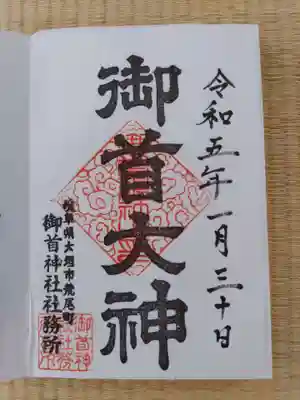 令和五年一月三十日
御首大神
岐阜県大垣市荒尾町
御首神社社務所